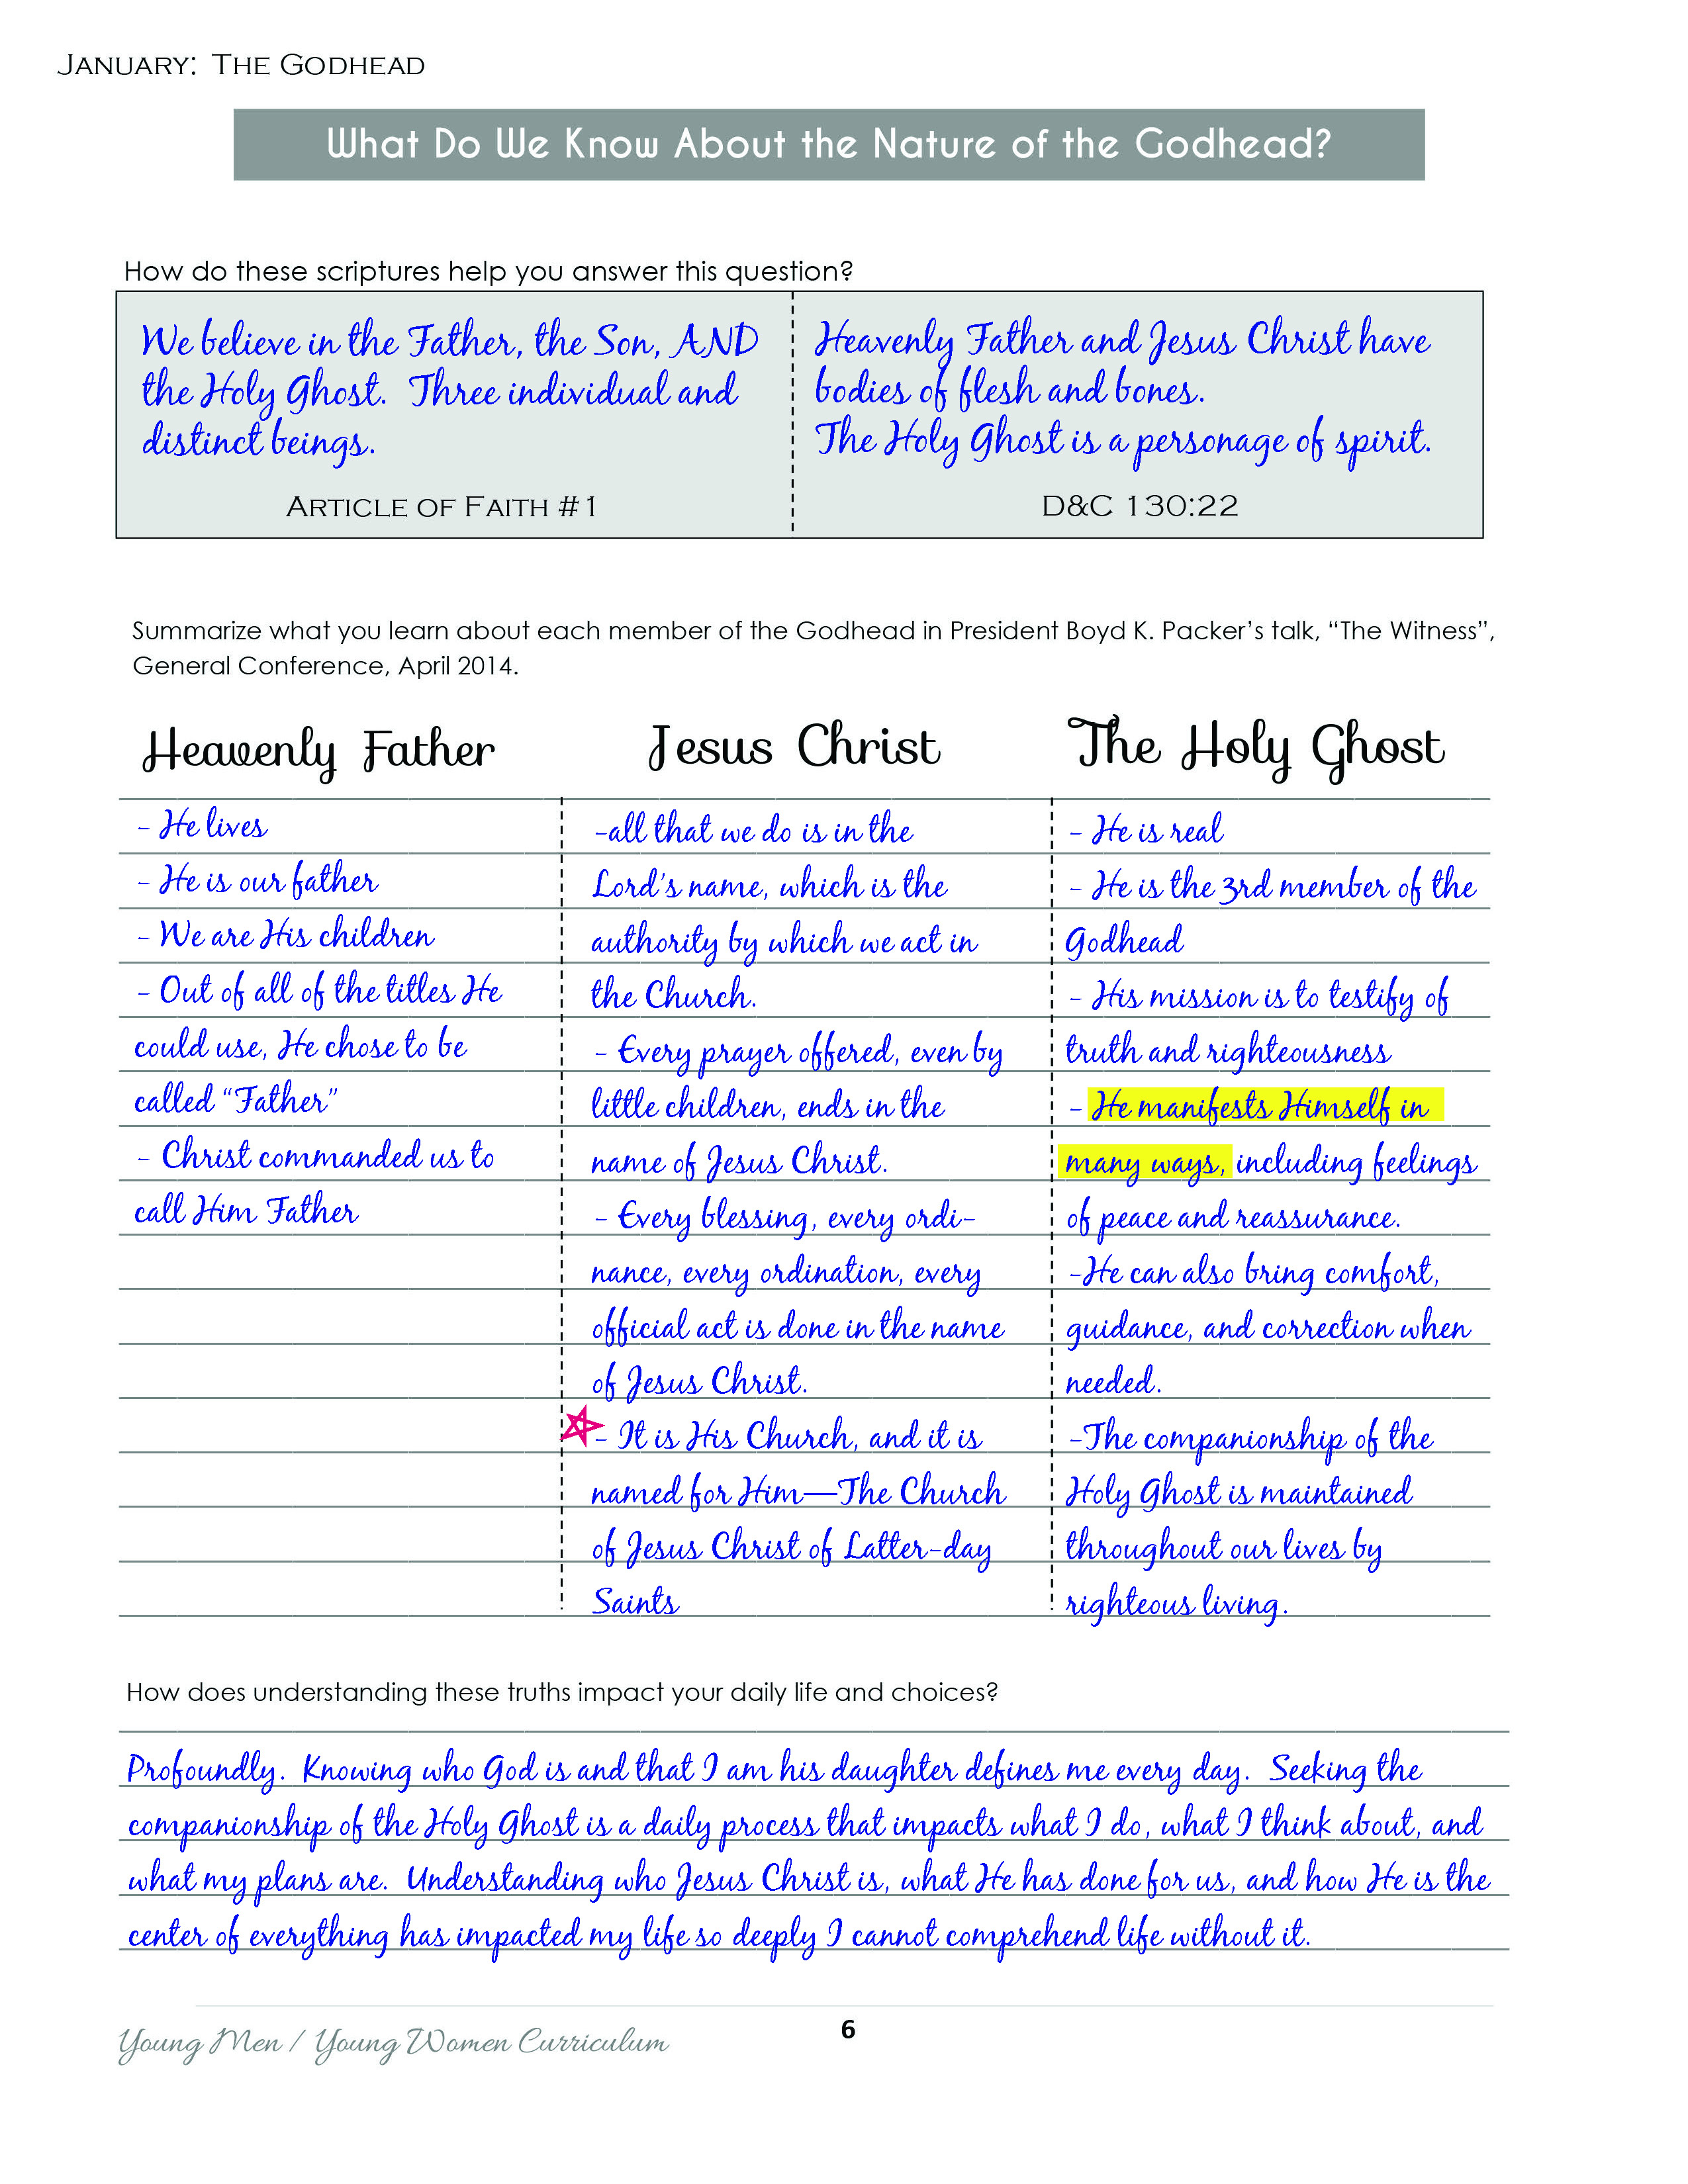 January: The Godhead
What Do We Know About the Nature of the Godhead?
How do these scriptures help you answer this question?
We believe in the Father, the Son, AND
the Holy Ghost. Three individual and
distinct beings.
Article of Faith #1
Heavenly Father and Jesus Christ have
bodies of flesh and bones.
The Holy Ghost is a personage of spirit.
D&C 130:22
Summarize what you learn about each member of the Godhead in President Boyd K. Packer's talk, "The Witness",
General Conference, April 2014.
Heavenly Father
- He lives
- He is our father
- We are His children
- Out of all of the titles He
could use, He chose to be
called "Father"
- Christ commanded us to
call Him Father
Jesus Christ
-all that we do is in the
Lord's name, which is the
authority by which we act in
the Church.
- Every prayer offered, even by
little children, ends in the
name of Jesus Christ.
- Every blessing, every ordi-
nance, every ordination, every
official act is done in the name
of Jesus Christ.
- It is His Church, and it is
named for Him—The Church
of Jesus Christ of Latter-day
Saints
The Holy Ghost
- He is real
- He is the 3rd member of the
Godhead
- His mission is to testify of
truth and righteousness
- He manifests Himself in
many ways, including feelings
of peace and reassurance.
-He can also bring comfort,
guidance, and correction when
needed.
-The companionship of the
Holy Ghost is maintained
throughout our lives by
righteous living.
How does understanding these truths impact your daily life and choices?
Profoundly. Knowing who God is and that I am his daughter defines me every day. Seeking the
companionship of the Holy Ghost is a daily process that impacts what I do, what I think about, and
what my plans are. Understanding who Jesus Christ is, what He has done for us, and how He is the
center of everything has impacted my life so deeply I cannot comprehend life without it.
Young Men / Young Women Curriculum
6